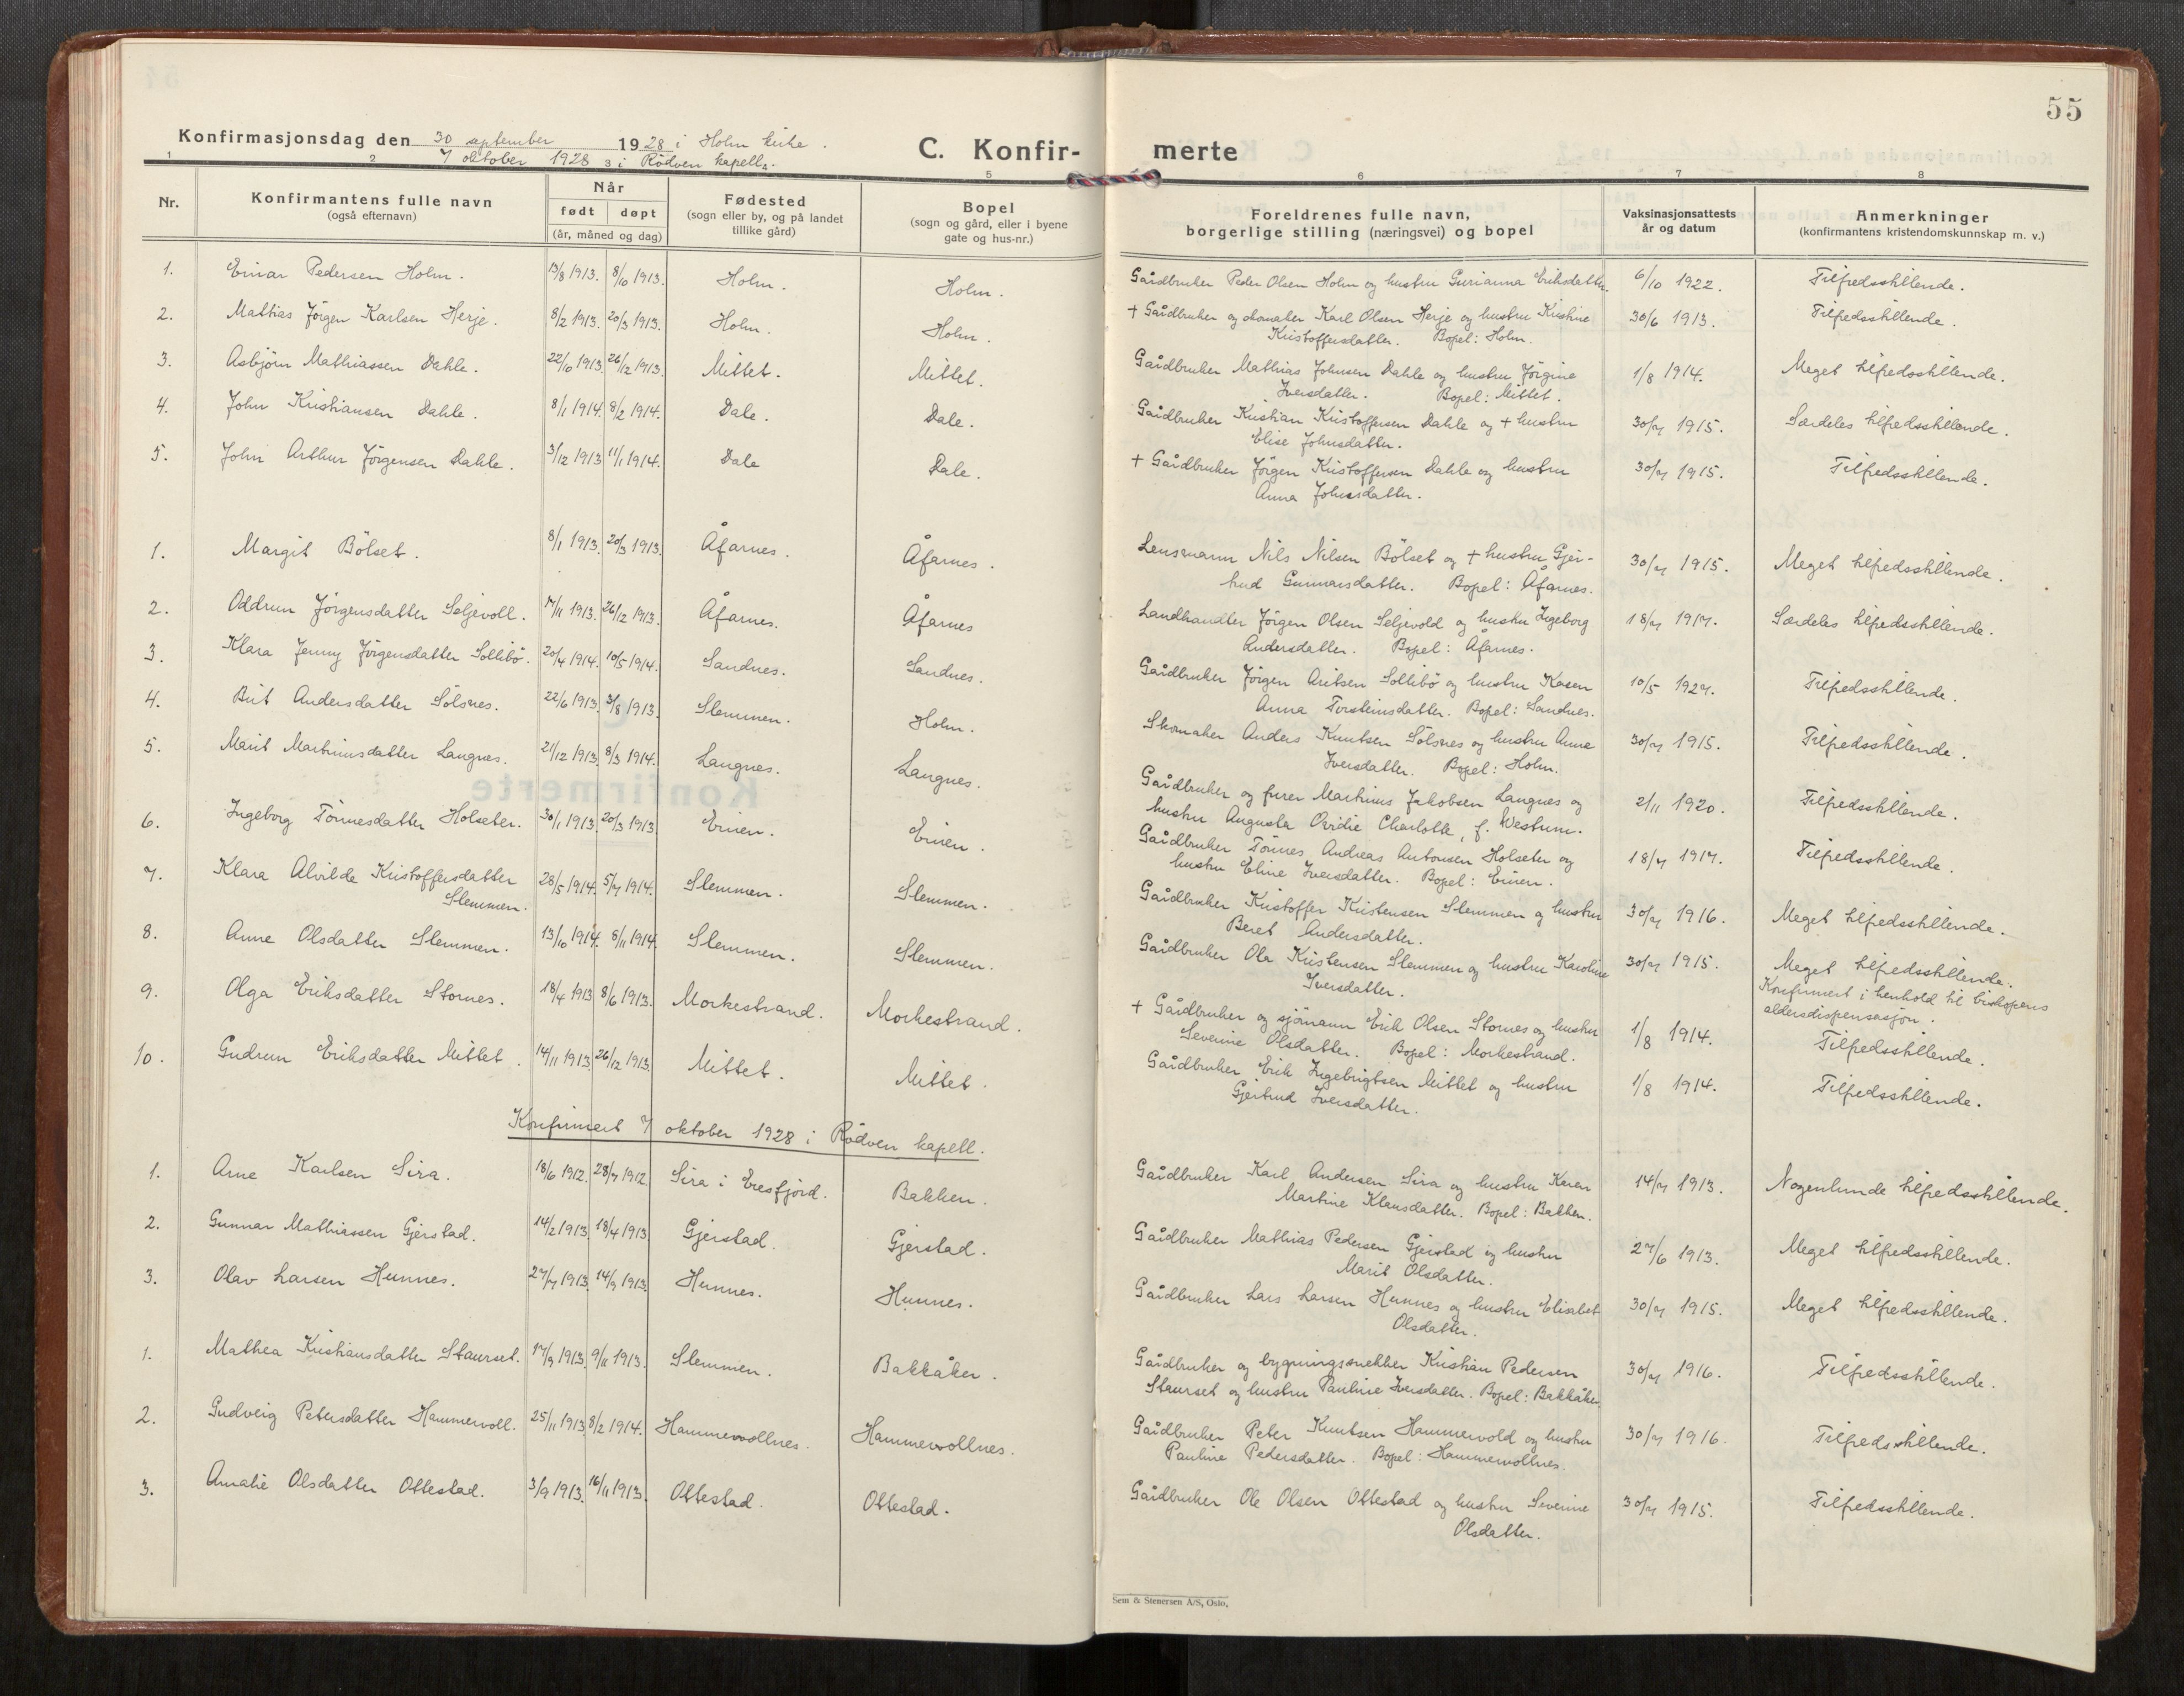 55
Konfirmasjonsdag den 30 september 1928 i Holm kirke.
7 oktober 1928 i Rödven kapell.
C. Konfir-merte
1 2 3 4 5 6 7 8
Nr. Konfirmantens fulle navn (også efternavn) Når født døpt (år, måned og dag) Fødested (sogn eller by, og på landet tillike gård) Bopel (sogn og gård, eller i byene gate og hus-nr.) Foreldrenes fulle navn, borgerlige stilling (næringsvei) og bopel Vaksinasjonsattests år og datum Anmerkninger (konfirmantens kristendomskunnskap m. v.)
1. Einar Pedersen Holm. 13/8 1913. 8/10 1913. Holm. Holm. Gårdbruker Peder Olsen Holm og hustru Gurianna Eriksdatter. 6/10 1922. Tilfredsstillende.
2. Mathias Jörgen Karlsen Herje. 8/2 1913. 20/3 1913. Holm. Holm. + Gårdbruker og skomaker Karl Olsen Herje og hustru Kristine 30/6 1913. Tilfredsstillende.
Kristoffersdatter. Bopel: Holm.
3. Asbjörn Mathiassen Dahle. 22/10 1913. 26/12 1913. Mittet. Mittet. Gårdbruker Mathias Johnsen Dahle og hustru Jörgine 1/8 1914. Meget tilfredsstillende.
Iversdatter. Bopel: Mittet.
4. John Kristiansen Dahle. 8/1 1914. 8/2 1914. Dale. Dale. Gårdbruker Kristian Kristoffersen Dahle og + hustru 30/7 1915. Særdeles tilfredsstillende.
Elise Johnsdatter.
5. John Arthur Jörgensen Dahle. 3/12 1913 11/1 1914. Dale Dale. + Gårdbruker Jörgen Kristoffersen Dahle og hustru 30/7 1915. Tilfredsstillende.
Anna Johnsdatter.
1. Margit Bölset. 8/1 1913. 20/3 1913. Åfarnes. Åfarnes. Lensmann Nils Nilsen Bölset og + hustru Gjer- 30/7 1915. Meget tilfredsstillende.
trud Gunnarsdatter. Bopel: Åfarnes.
2. Oddrun Jörgensdatter Seljevoll. 17/11 1913. 26/12 1913. Åfarnes. Åfarnes Landhandler Jörgen Olsen Seljevold og hustru Ingeborg 18/7 1917. Særdeles tilfredsstillende.
Andersdatter. Bopel: Åfarnes.
3. Klara Jenny Jörgensdatter Sollibö. 20/4 1914. 10/5 1914. Sandnes. Sandnes. Gårdbruker Jörgen Aritsen Sollibö og hustru Karen 10/5 1927. Tilfredsstillende.
Anna Torsteinsdatter. Bopel: Sandnes.
4. Brit Andersdatter Sölsnes. 22/6 1913. 3/8 1913. Slemmen. Holm. Skomaker Anders Knutsen Sölsnes og hustru Anne 30/7 1915. Tilfredsstillende.
Iversdatter. Bopel: Holm.
5. Marit Martinusdatter Langnes. 21/12 1913. 8/3 1914. Langnes. Langnes. Gårdbruker og furer Martinus Jakobsen Langnes og 2/11 1920. Tilfredsstillende.
hustru Augusta Ovidie Charlotte, f. Westrum.
6. Ingeborg Tönnesdatter Holseter. 30/1 1913. 20/3 1913. Einen. Einen. Gårdbruker Tönnes Andreas Antonsen Holseter og 18/7 1917. Tilfredsstillende.
hustru Eline Iversdatter. Bopel: Einen.
7. Klara Alvilde Kristoffersdatter Slemmen. 28/5 1914. 5/7 1914. Slemmen. Slemmen. Gårdbruker Kristoffer Kristensen Slemmen og hustru 30/7 1916. Meget tilfredsstillende.
Beret Andersdatter.
8. Anne Olsdatter Slemmen. 13/10 1914. 8/11 1914. Slemmen. Slemmen. Gårdbruker Ola Kristensen Slemmen og hustru Karoline 30/7 1915. Meget tilfredsstillende.
Iversdatter. Konfirmert i henhold til biskopens
aldersdispensasjon.
9. Olga Eriksdatter Stornes. 18/4 1913 8/6 1913. Morkestrand. Morkestrand. + Gårdbruker og sjömann Erik Olsen Stornes og hustru 1/8 1914. Tilfredsstillende.
Severine Olsdatter. Bopel: Morkestrand.
10. Gudrun Eriksdatter Mittet. 14/11 1913. 26/12 1913. Mittet. Mittet. Gårdbruker Erik Ingebrigtsen Mittet og hustru 1/8 1914. Tilfredsstillende.
Gjertrud Iversdatter.
Konfirmert 7 oktober 1928 i Rödven kapell.
1. Arne Karlsen Sira. 18/6 1912. 28/7 1912. Sira i Eresfjord. Bakken. Gårdbruker Karl Andersen Sira og hustru Karen 14/7 1913. Nogenlunde tilfredsstillende.
Martine Klausdatter. Bopel: Bakken.
2. Gunnar Mathiassen Gjerstad. 14/2 1913. 18/4 1913 Gjerstad. Gjerstad. Gårdbruker Mathias Pedersen Gjerstad og hustru 27/6 1913. Meget tilfredsstillende.
Marit Olsdatter.
3. Olav Larsen Hunnes. 27/7 1913. 14/9 1913. Hunnes. Hunnes. Gårdbruker Lars Larsen Hunnes og hustru Elisabet 30/7 1915. Meget tilfredsstillende.
Olsdatter.
1. Mathea Kristiansdatter Staurset. 17/9 1913. 9/11 1913. Slemmen. Bakkåker. Gårdbruker og bygningssnekker Kristian Pedersen 30/7 1916. Tilfredsstillende.
Staurset og hustru Pauline Iversdatter. Bopel: Bakkåker.
2. Gudveig Petersdatter Hammervoll. 25/11 1913. 8/2 1914. Hammervollnes. Hammervollnes. Gårdbruker Peter Knutsen Hammervold og hustru 30/7 1916. Tilfredsstillende.
Pauline Pedersdatter. Bopel: Hammervollnes.
3. Amalie Olsdatter Ottestad. 3/9 1913. 16/11 1913. Ottestad. Ottestad. Gårdbruker Ole Olsen Ottestad og hustru Severine 30/7 1915. Tilfredsstillende.
Olsdatter.
Sem & Stenersen A/S, Oslo.